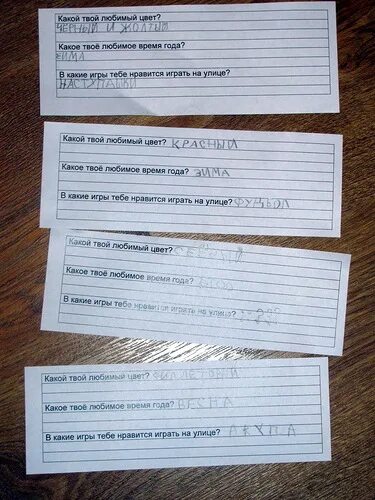 Какой твой любимый цвет?
ЧЕРНЫЙ И ЖОЛТЫЙ
Какое твоё любимое время года?
ЗИМА
В какие игры тебе нравится играть на улице?
Какой твой любимый цвет? КРАСНЫЙ
Какое твоё любимое время года? ЗИМА
В какие игры тебе нравится играть на улице? ФУЦБОЛ
Какой твой любимый цвет?
Какое твоё любимое время года?
В какие игры тебе нравится играть на улице?
Какой твой любимый цвет?
Какое твоё любимое время года? ВЕСНА
В какие игры тебе нравится играть на улице?